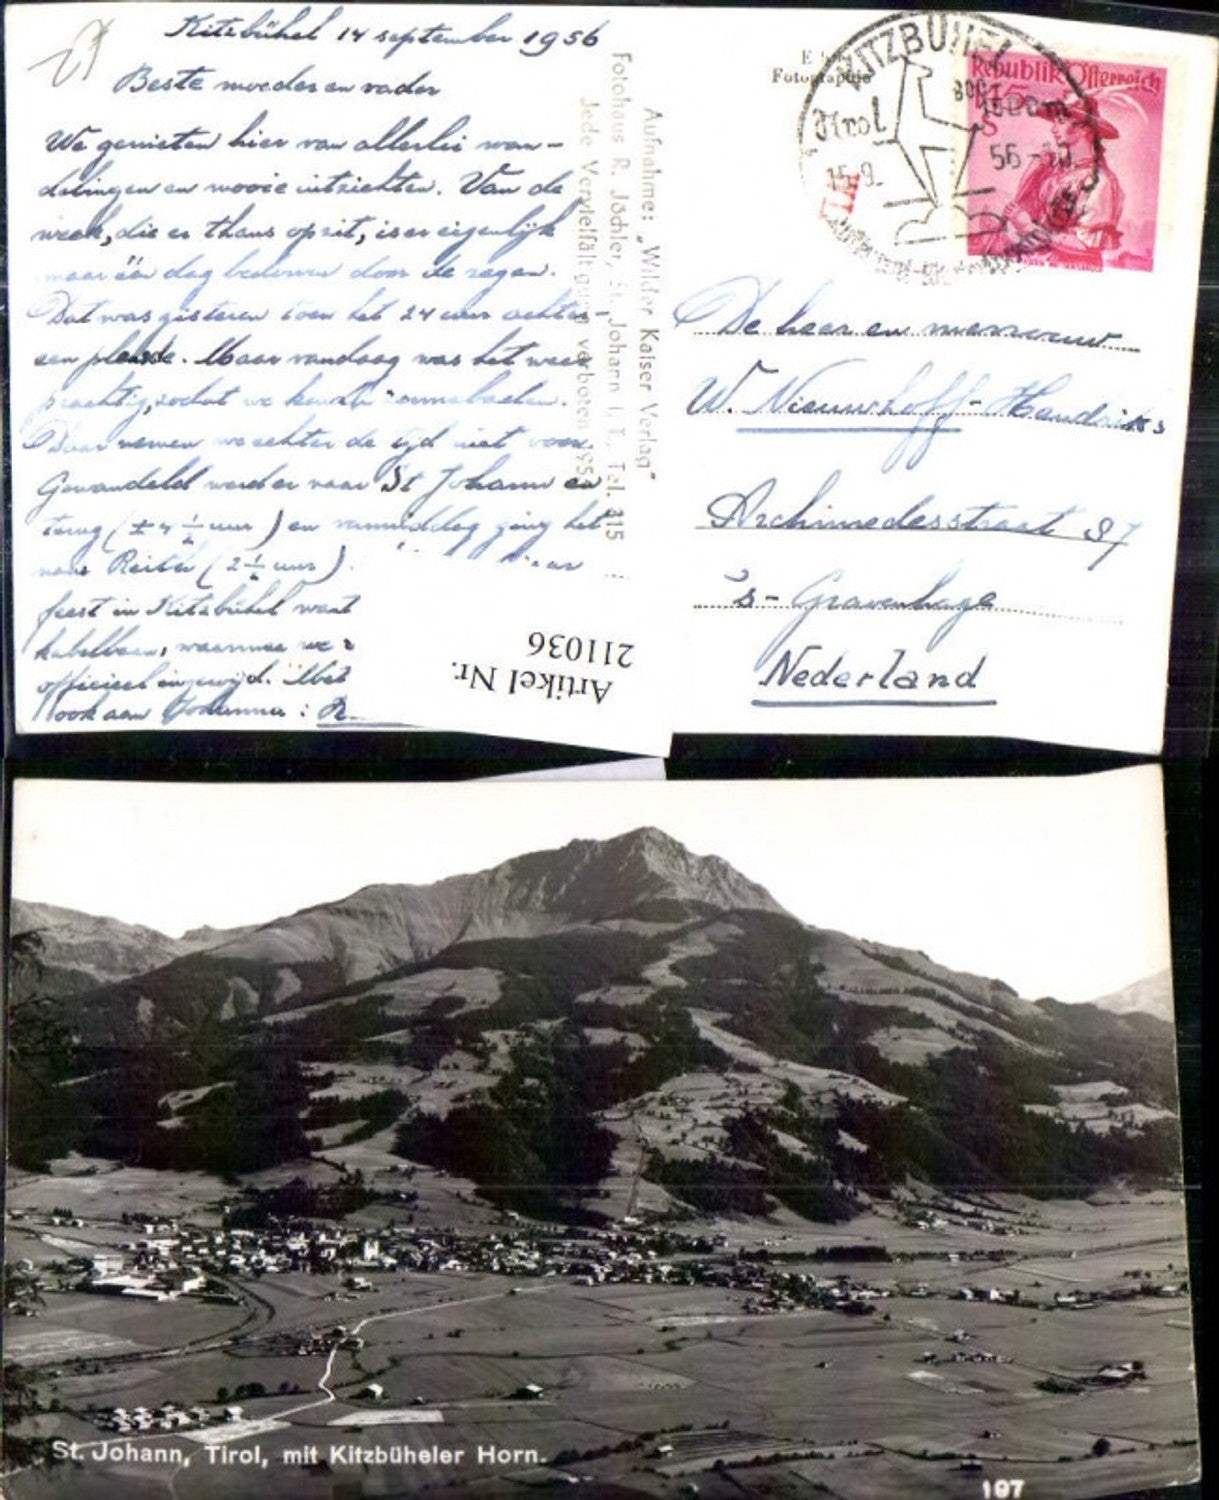 Kitzbühel 14 september 1956
Beste moeder en vader
We genieten hier van allerlei wan-
delingen en mooie uitzichten. Van de
week, die er thans opzit, is er eigenlijk
maar één dag bedorven door de regen.
Dat was gisteren toen het 24 uur achter-
een plensde. Maar vandaag was het weer
prachtig, zodat we konden zonnebaden.
Daar nemen we echter de tijd niet voor.
Gewandeld werd er naar St Johann en
terug (± 4 ½ uur) en vanmiddag ging het
naar Reith (2 ½ uur).
feest in Kitzbühel want
kabelbaan, waarmee we
officieel ingewijd. Met
ook aan
Aufnahme: „Wilder Kaiser Verlag"
Fotohaus R. Jöchler, St. Johann i. T., Tel. 315
Jede Vervielfältigung verboten 195
Artikel Nr.
211036
Fotographie
KITZBÜHEL
Tirol
15.9.
56-10
Republik Österreich
De heer en mevrouw
W. Nieuwhoff-Hendriks
Archimedesstraat 97
's-Gravenhage
Nederland
St. Johann, Tirol, mit Kitzbüheler Horn.
197